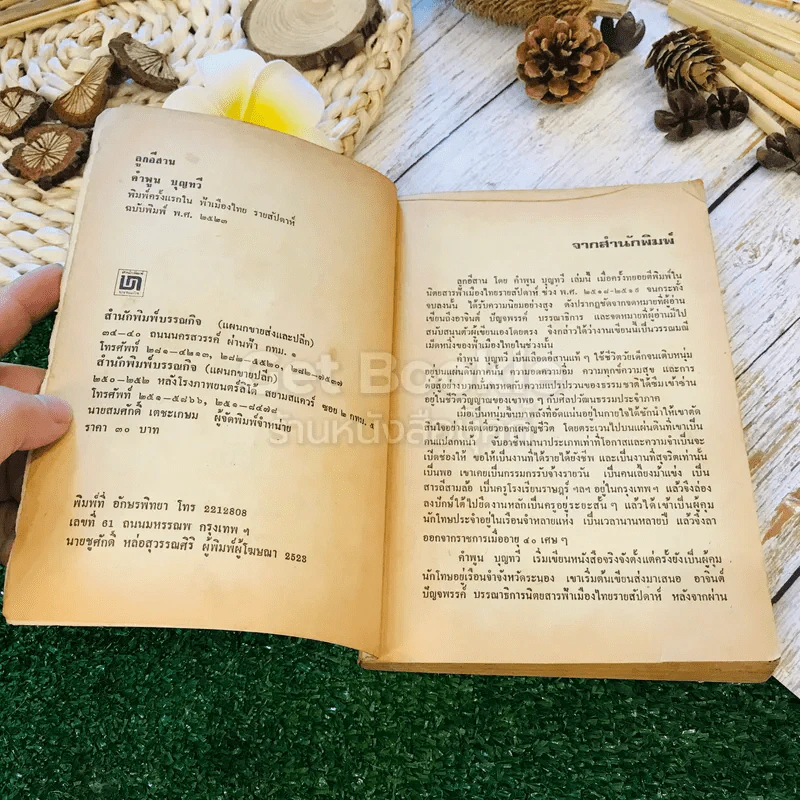 ลูกอีสาน
คำพูน บุญทวี
พิมพ์ครั้งแรกใน ฟ้าเมืองไทย รายสัปดาห์
ฉบับพิมพ์ พ.ศ. ๒๕๒๓
สำนักพิมพ์บรรณกิจ (แผนกขายส่งและปลีก)
๓๔-๔๐ ถนนนครสวรรค์ ผ่านฟ้า กทม. ๑
โทรศัพท์ ๒๘๑-๔๒๑๓, ๒๘๒-๕๕๒๐, ๒๘๒-๗๕๓๗
สำนักพิมพ์บรรณกิจ (แผนกขายปลีก)
๒๕๐-๒๕๒ หลังโรงภาพยนตร์ลิโด้ สยามสแควร์ ซอย ๒ กทม. ๕
โทรศัพท์ ๒๕๑-๕๘๖๖, ๒๕๑-๔๔๗๘
นายสมศักดิ์ เตชะเกษม ผู้จัดพิมพ์จำหน่าย
ราคา ๓๐ บาท
พิมพ์ที่ อักษรพิทยา โทร 2212808
เลขที่ 61 ถนนมหรรณพ กรุงเทพ ฯ
นายชูศักดิ์ หล่อสุวรรณศิริ ผู้พิมพ์ผู้โฆษณา 2523
จากสำนักพิมพ์
ลูกอีสาน โดย คำพูน บุญทวี เล่มนี้ เมื่อครั้งทยอยตีพิมพ์ใน
นิตยสารฟ้าเมืองไทยรายสัปดาห์ ช่วง พ.ศ. ๒๕๑๘-๒๕๑๙ จนกระทั่ง
จบลงนั้น ได้รับความนิยมอย่างสูง ดังปรากฏชัดจากจดหมายที่ผู้อ่าน
เขียนถึงอาจินต์ ปัญจพรรค์ บรรณาธิการ และจดหมายที่ผู้อ่านมีไป
สนับสนุนตัวผู้เขียนเองโดยตรง จึงกล่าวได้ว่างานเขียนนี้เป็นวรรณมณี
เม็ดหนึ่งของฟ้าเมืองไทยในช่วงนั้น
คำพูน บุญทวี เป็นเลือดอีสานแท้ ๆ ใช้ชีวิตวัยเด็กจนเติบหนุ่ม
อยู่บนแผ่นดินภาคนั้น ความอดความอิ่ม ความทุกข์ความสุข และการ
ต่อสู้อย่างบากบั่นทรหดกับความแปรปรวนของธรรมชาติได้ซึมเข้าซ่าน
อยู่ในชีวิตวิญญาณของเขาพอ ๆ กับศิลปวัฒนธรรมประจำภาค
เมื่อเป็นหนุ่มขึ้นมาพลังที่อัดแน่นอยู่ภายในใจได้ชักนำให้เขาตัด
สินใจอย่างเด็ดเดี่ยวออกเผชิญชีวิต โดยตระเวนไปบนแผ่นดินที่เขาเป็น
คนแปลกหน้า จับอาชีพนานาประเภทเท่าที่โอกาสและความจำเป็นจะ
เปิดช่องให้ ขอให้เป็นงานที่ได้รายได้ยังชีพ และเป็นงานที่สุจริตเท่านั้น
เป็นพอ เขาเคยเป็นกรรมกรรับจ้างรายวัน เป็นคนเลี้ยงม้าแข่ง เป็น
สารถีสามล้อ เป็นครูโรงเรียนราษฎร์ ฯลฯ อยู่ในกรุงเทพ ฯ แล้วจึงล่อง
ลงปักษ์ใต้ไปยึดงานหลักเป็นครูอยู่ระยะสั้น ๆ แล้วได้เข้าเป็นผู้คุม
นักโทษประจำอยู่ในเรือนจำหลายแห่ง เป็นเวลานานหลายปี แล้วจึงลา
ออกจากราชการเมื่ออายุ ๔๐ เศษ ๆ
คำพูน บุญทวี เริ่มเขียนหนังสือจริงจังตั้งแต่ครั้งยังเป็นผู้คุม
นักโทษอยู่เรือนจำจังหวัดระนอง เขาเริ่มต้นเขียนส่งมาเสนอ อาจินต์
ปัญจพรรค์ บรรณาธิการนิตยสารฟ้าเมืองไทยรายสัปดาห์ หลังจากผ่าน